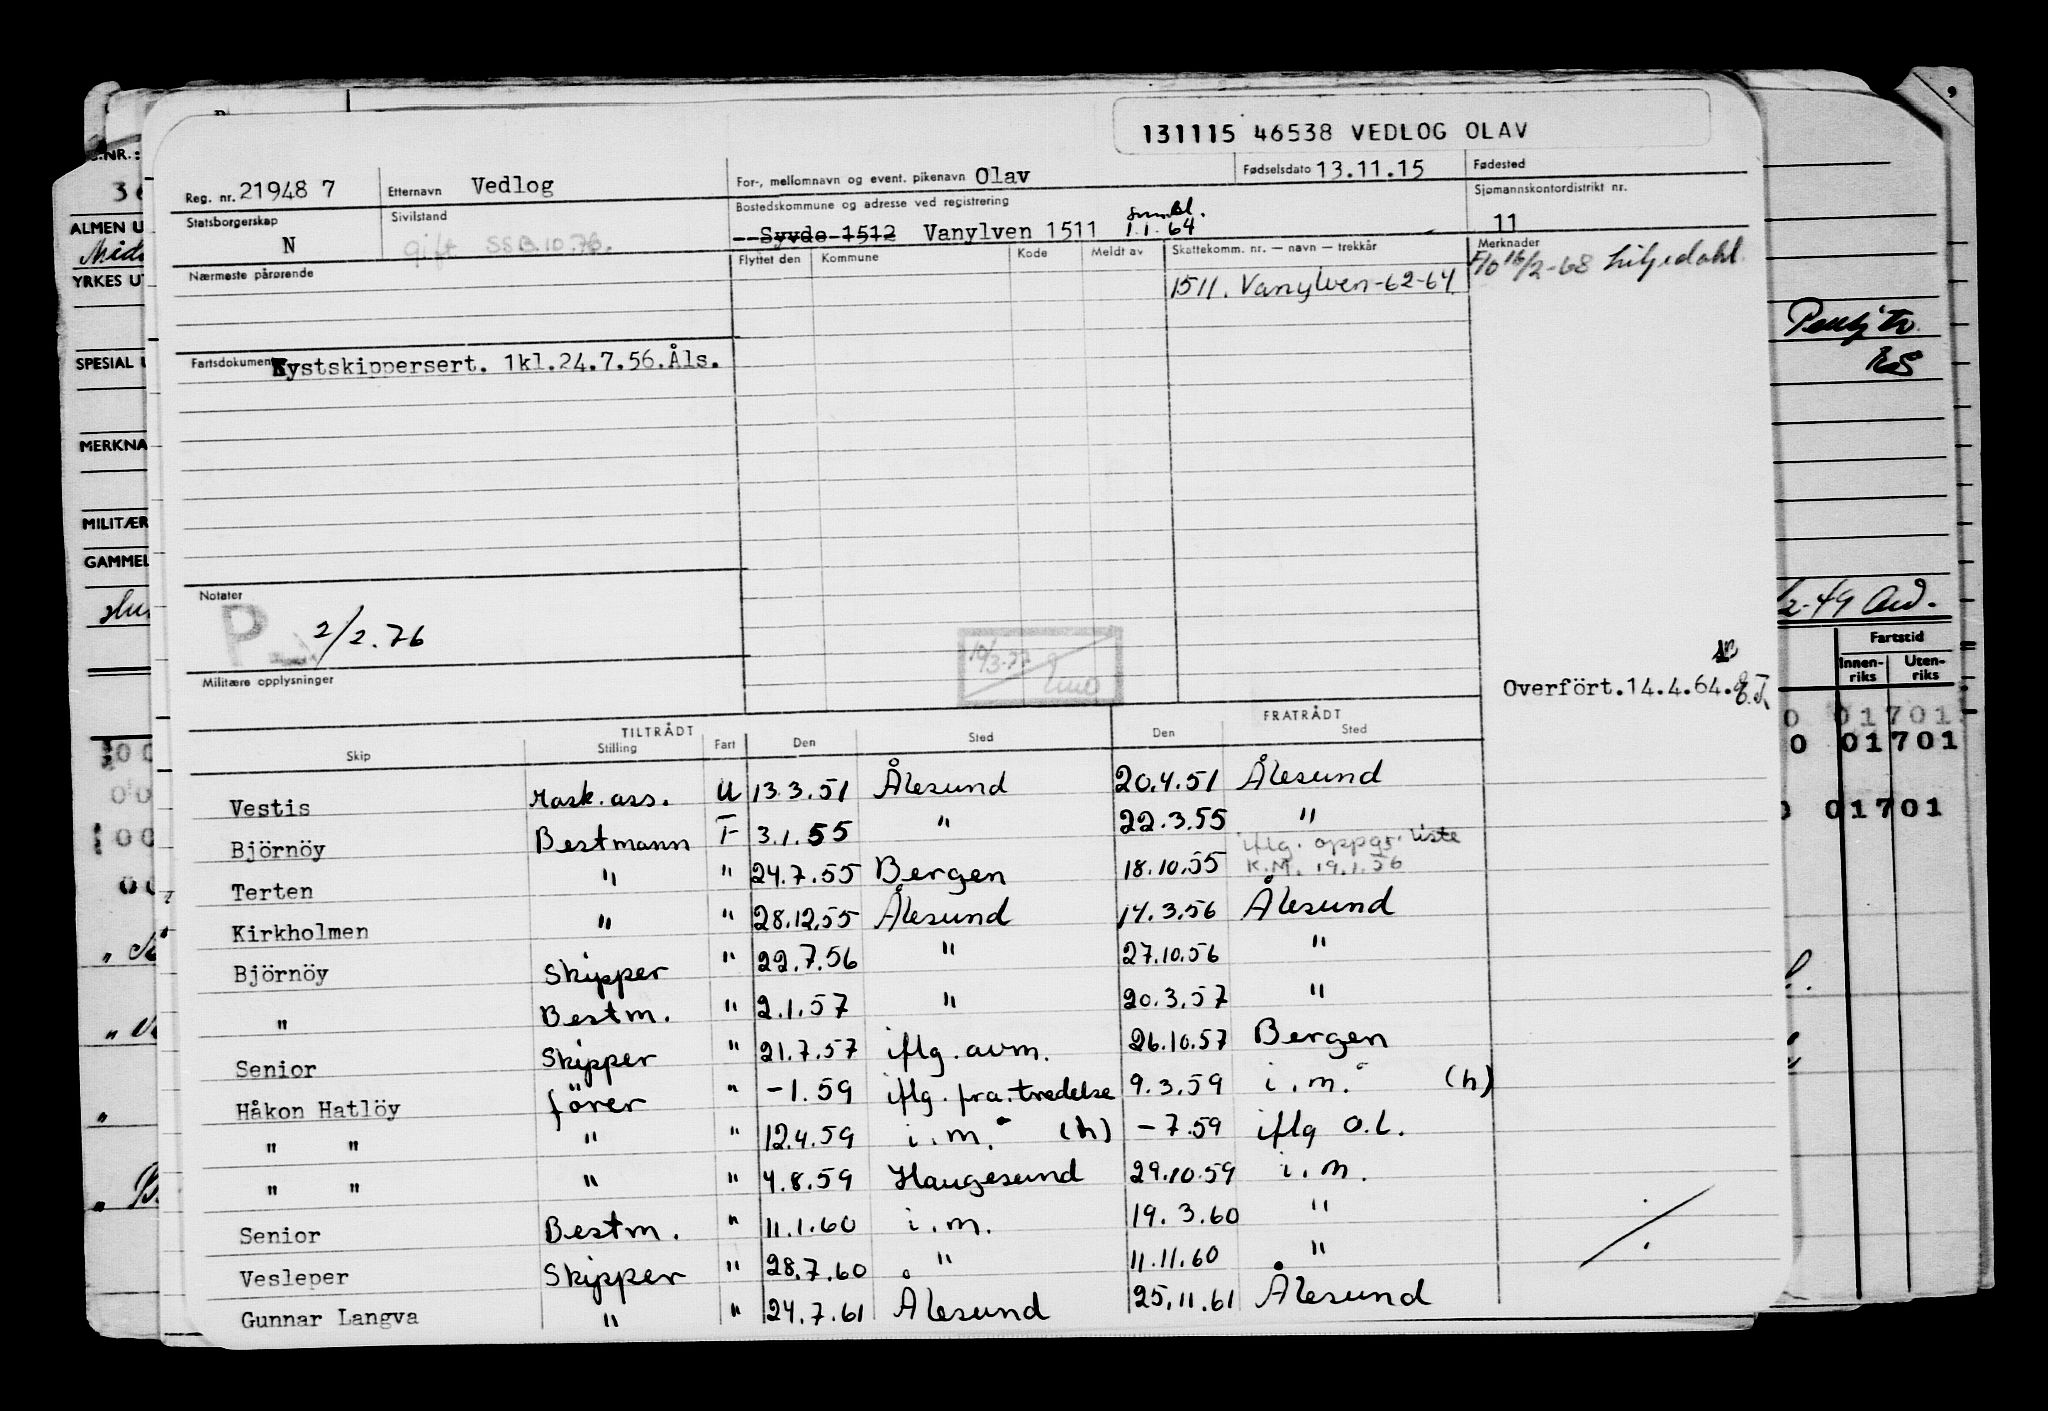 131115 46538 VEDLOG OLAV
Reg. nr. 21948 7 Etternavn Vedlog For-, mellomnavn og event. pikenavn Olav Fødselsdato 13.11.15 Fødested
Statsborgerskap N Sivilstand gift SSB.10.76. Bostedskommune og adresse ved registrering Syvde 1512 Vanylven 1511 1.1.64 Sjømannskontordistrikt nr. 11
Nærmeste pårørende Flyttet den Kommune Kode Meldt av Skattekomm. nr. — navn — trekkår Merknader
1511. Vanylven-62-64 F/O 16/2-68 Liljedahl.
Fartsdokument Kystskippersert. 1kl.24.7.56.Åls.
Notater
P 2/2.76
10/3-77
Militære opplysninger
Overfört.14.4.64.
TILTRÅDT FRATRÅDT
Skip Stilling Fart Den Sted Den Sted
Vestis Mask. ass. U 13.3.51 Ålesund 20.4.51 Ålesund
Björnöy Bestmann F 3.1.55 " 22.3.55 "
Terten " " 24.7.55 Bergen 18.10.55 iflg. oppgr. liste K.M. 19.1.56
Kirkholmen " " 28.12.55 Ålesund 14.3.56 Ålesund
Björnöy Skipper " 22.7.56 " 27.10.56 "
" Bestm. " 2.1.57 " 20.3.57 "
Senior Skipper " 21.7.57 iflg. avm. 26.10.57 Bergen
Håkon Hatlöy förer " -1.59 iflg. fra.tredelse 9.3.59 i.m. (h)
" " " " 12.4.59 i.m. (h) -7.59 iflg o.l.
" " " " 4.8.59 Haugesund 29.10.59 i.m.
Senior Bestm. " 11.1.60 i.m. 19.3.60 "
Vesleper Skipper " 28.7.60 " 11.11.60 "
Gunnar Langva " " 24.7.61 Ålesund 25.11.61 Ålesund
NR.:
36
ALMEN U
YRKES UT
SPESIAL
MERKNA
MILITÆR
GAMMEL
RS
2-49
Fartstid
Innen-riks Uten-riks
0 01701
0 01701
0 01701